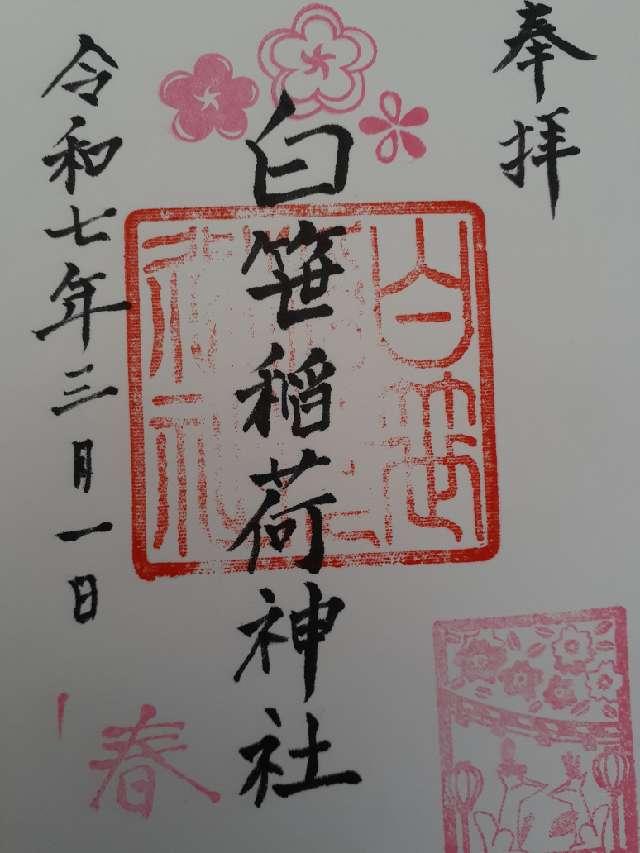 奉拝
白笹稲荷神社
令和七年三月一日
春